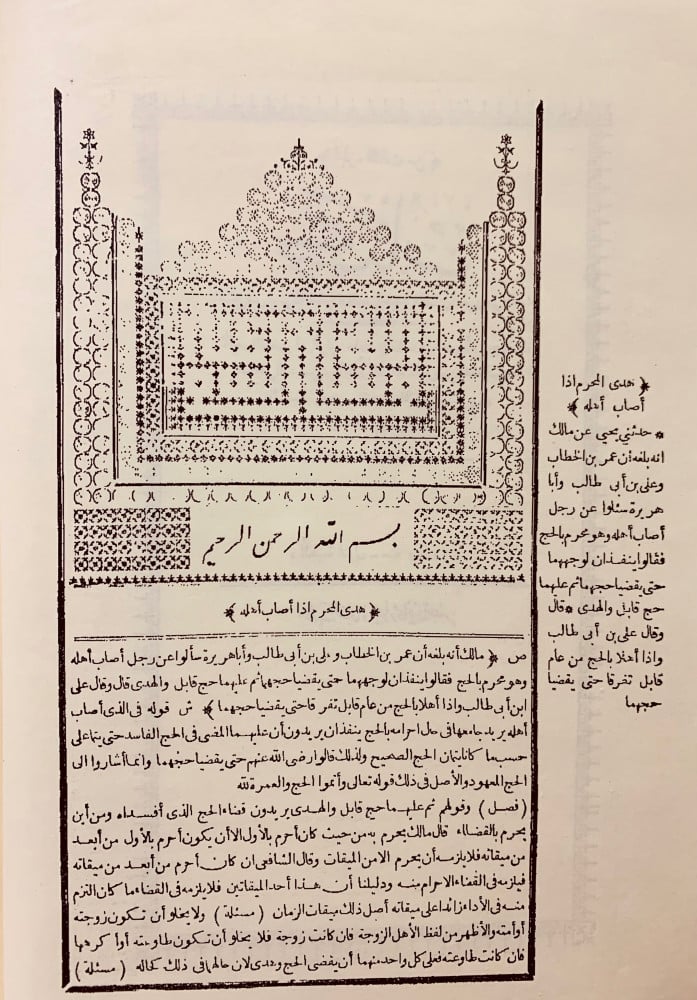 بسم الله الرحمن الرحيم
﴿ هدى المحرم اذا أصاب أهله ﴾
ص ﴿ مالك أنه بلغه أن عمر بن الخطاب وعلى بن أبى طالب وأبا هريرة سألوا عن رجل أصاب أهله
وهو محرم بالحج فقالوا ينفذان لوجههما حتى يقضيا حجهما ثم عليهما حج قابل والهدى قال وقال على
ابن أبى طالب واذا أهلا بالحج من عام قابل تفرقا حتى يقضيا حجهما ﴾ ش قوله فى الذى أصاب
أهله يريد جامعها فى حال احرامه بالحج ينفذان يريدون أن عليهما المضى فى الحج الفاسد حتى يتما على
حسب ما كانا يتمان الحج الصحيح ولذلك قالوا رضى الله عنهم حتى يقضيا حجهما وانما أشاروا الى
الحج المعهود والأصل فى ذلك قوله تعالى وأتموا الحج والعمرة لله
( فصل ) وقولهم ثم عليهما حج قابل والهدى يريدون قضاء الحج الذى أفسداه ومن أين
يحرم بالقضاء قال مالك يحرم به من حيث كان أحرم بالأول الا أن يكون أحرم بالأول من أبعد
من ميقاته فلا يلزمه أن يحرم الا من الميقات وقال الشافعى ان كان أحرم من أبعد من ميقاته
فيلزمه فى القضاء الاحرام منه ودليلنا أن هذا أحد الميقاتين فلا يلزمه فى القضاء ما كان التزم
منه فى الأداء زائدا على ميقاته أصل ذلك ميقات الزمان ( مسئلة ) ولا يخلو أن تكون زوجته
أو أمته والأظهر من لفظ الأهل الزوجة فان كانت زوجة فلا يخلو أن تكون طاوعته أو أكرهها
فان كانت طاوعته فعلى كل واحد منهما أن يقضى الحج ويهدى لان حالهما فى ذلك كحاله ( مسئلة )
﴿ هدى المحرم اذا
أصاب أهله ﴾
* حدثنى يحيى عن مالك
انه بلغه أن عمر بن الخطاب
وعلى بن أبى طالب وأبا
هريرة سئلوا عن رجل
أصاب أهله وهو محرم بالحج
فقالوا ينفذان لوجههما
حتى يقضيا حجهما ثم عليهما
حج قابل والهدى * قال
وقال على بن أبى طالب
واذا أهلا بالحج من عام
قابل تفرقا حتى يقضيا
حجهما